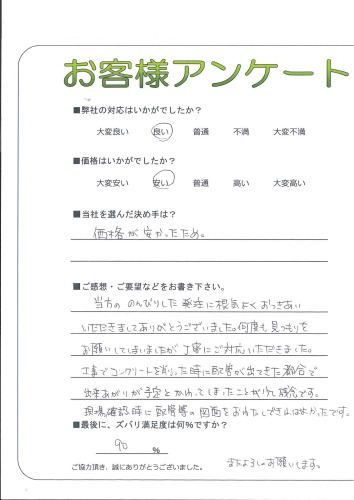 お客様アンケート
■弊社の対応はいかがでしたか？
大変良い 良い 普通 不満 大変不満
■価格はいかがでしたか？
大変安い 安い 普通 高い 大変高い
■当社を選んだ決め手は？
価格が安かったため。
■ご感想・ご要望などをお書き下さい。
当方ののんびりした発注に根気よくおつきあい
いただきましてありがとうございました。何度も見つもりを
お願いしてしまいましたが丁寧にご対応いただきました。
工事でコンクリートを削りた時に配管が出てきた都合で
出来あがりが予定とかわってしまったことがけ残念です。
現場確認時に配管等の図面をおわたしできればよかったです。
■最後に、ズバリ満足度は何%ですか？
90 %
ご協力頂き、誠にありがとうございました。
またよろしくお願いします。